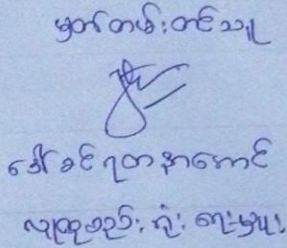 မှတ်တမ်းတင်သူ
ဒေါ်ခင်ရတနာအောင်
လူထုစည်းရုံးရေးမှူး